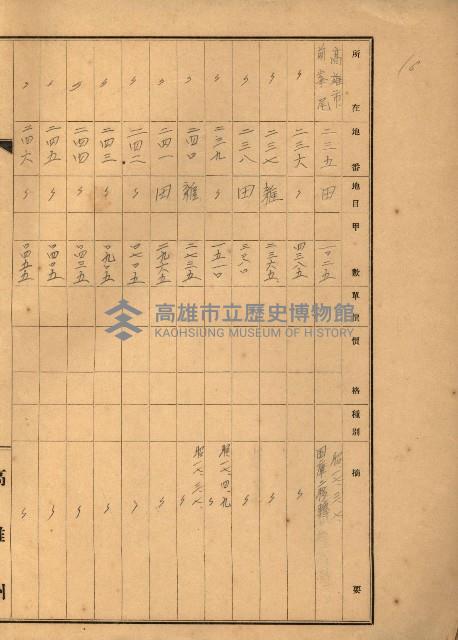 16
所在 地番 地目 甲數 單價 價格 種別 摘要
高雄市前峯尾 二三五 田 一〇二五 昭一七、三、八
〃 二三六 〃 四三八五 〃
〃 二三七 雜 二三六五 〃
〃 二三八 田 〃
〃 二三九 〃 一五一〇 昭一七、四、九 〃
〃 二四〇 雜 二七三五 昭一七、三、八 〃
〃 二四一 田 二九六五 〃
〃 二四二 〃 〇七一五 〃
〃 二四三 〃 〇九〇五 〃
〃 二四四 〃 〇四三五 〃
〃 二四五 〃 〇四〇五 〃
〃 二四六 〃 〇四五五 〃
高雄州
高雄市立歷史博物館
KAOHSIUNG MUSEUM OF HISTORY